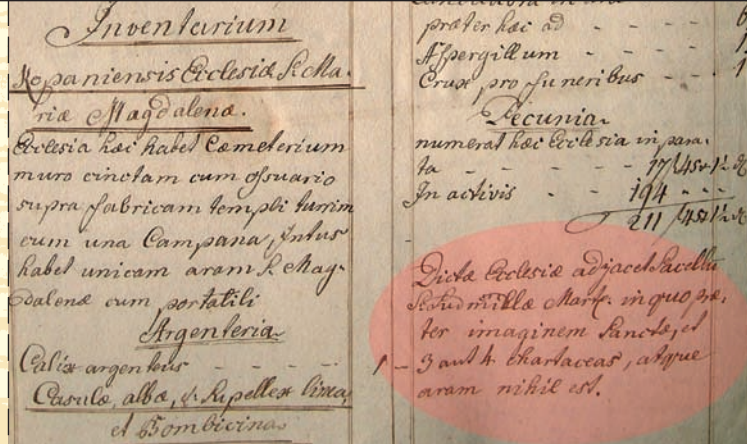 Inventarium
Kopaniensis Ecclesiæ S. Ma-
riæ Magdalenæ.
Ecclesia hæc habet Cæmeterium
muro cinctam cum ossuario
supra fabricam templi turrim
cum una Campana, Intus
habet unicam aram S. Mag-
dalenæ cum portatili
Argenteria
Calix argenteus - - - - - 1
Casulæ, albæ, & supellex linea,
et Bombicina
præter hæc ad - - - - -
Aspergillum - - - - -
Crux pro funeribus - - - 1
Pecunia
numerat hæc Ecclesia in para-
ta - - - - 17 45
In activis - - - 194 - - -
211 45
Dictæ Ecclesiæ adjacet Sacellu
S. Ludmillæ Mart. in quo præ-
ter imaginem Sanctæ, et
3 aut 4 chartaceas, atque
aram nihil est.